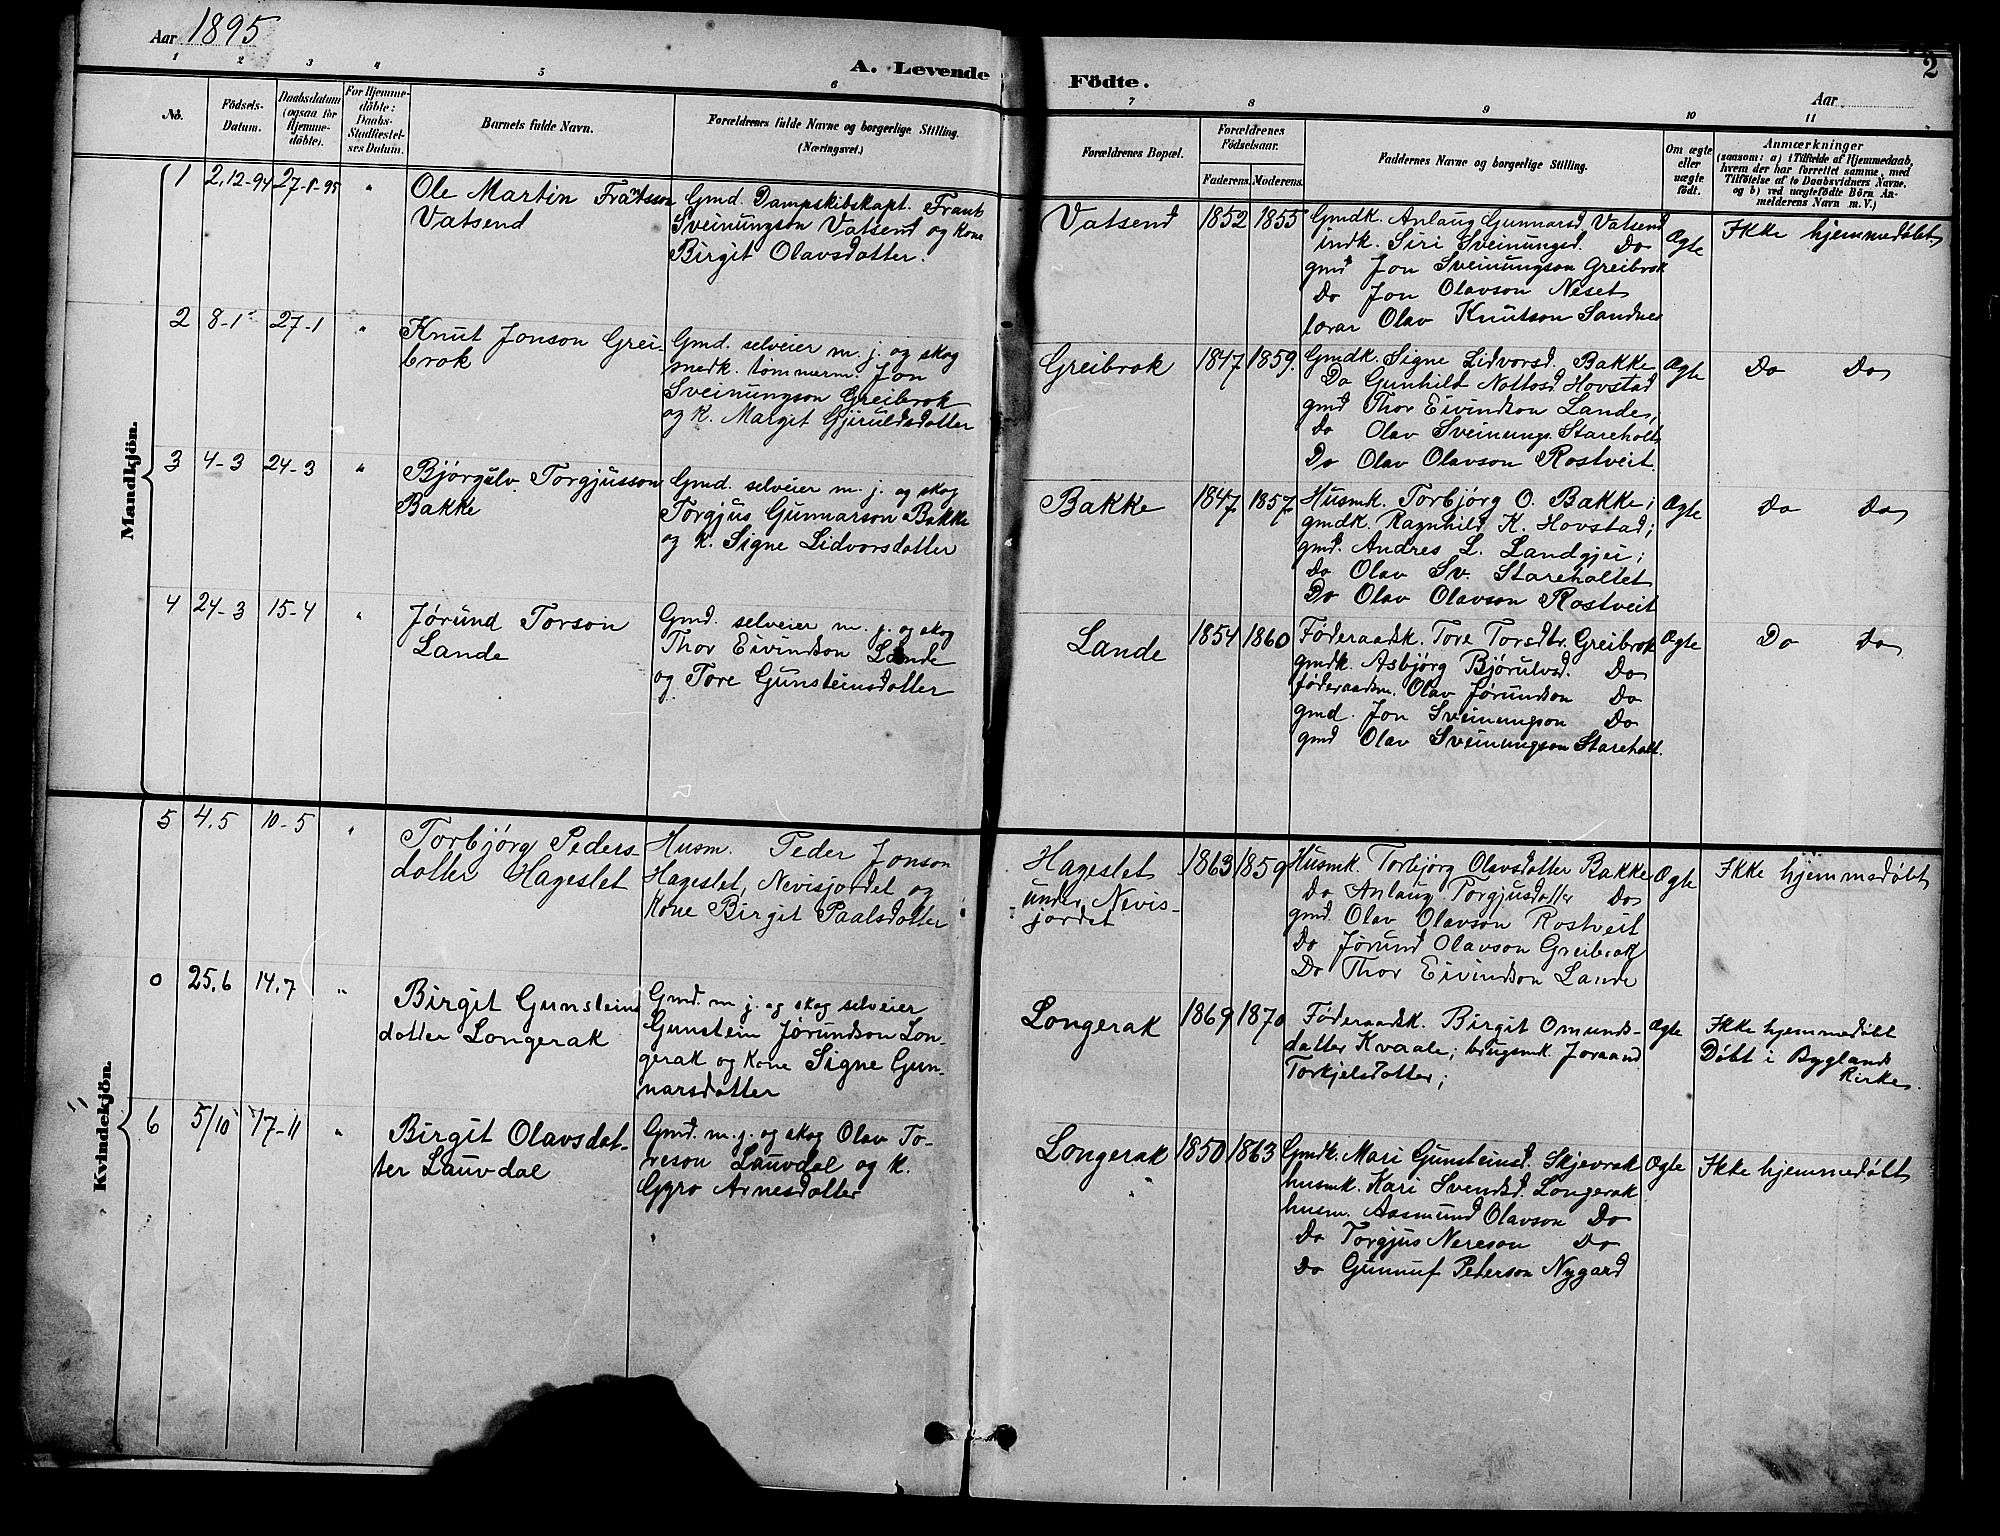 Aar 1895
A. Levende Födte.
2
Aar
1 2 3 4 5 6 7 8 9 10 11
No.
Födsels-
Datum.
Daabsdatum
(ogsaa for
Hjemme-
döbte).
For Hjemme-
döbte:
Daabs-
Stadfæstel-
ses Datum.
Barnets fulde Navn.
Forældrenes fulde Navne og borgerlige Stilling.
(Næringsvei.)
Forældrenes Bopæl.
Forældrenes
Födselsaar.
Faderens. Moderens.
Faddernes Navne og borgerlige Stilling.
Om ægte
eller
uægte
födt.
Anmærkninger
(saasom: a) i Tilfælde af Hjemmedaab,
hvem der har forrettet samme, med
Tilföielse af to Daabsvidners Navne,
og b) ved uægtefödte Börn An-
melderens Navn m. V.)
Mandkjön.
1 2.12-94 27-1-95 "
Ole Martin Frantsson
Vatsend
Gmd. Dampskibskapt. Frants
Sveinungson Vatsend og kone
Birgit Olavsdatter.
Vatsend 1852 1855
Gmdk. Anlaug Gunnarsd. Vatsend
indk. Siri Sveinungsd. Do
gmd Jon Sveinungson Greibrok
Do Jon Olavson Neset
lærar Olav Knutson Sandnes
Ægte
Ikke hjemmedøbt
2 8-1 27-1 "
Knut Jonson Grei-
brok
Gmd. selveier m. j. og skog
snedk. tømmerm. Jon
Sveinungson Greibrok
og k. Margit Gjeruldsdotter
Greibrok 1847 1859.
Gmdk. Signe Lidvorsd. Bakke
Do Gunhild Nottosd Hovstad
gmd Thor Eivindson Lande,
Do Olav Sveinungs. Stareholt
Do Olav Olavson Rostveit.
Ægte
Do Do
3 4-3 24-3 "
Bjørgulv Torgjusson
Bakke
Gmd. selveier m. j. og skog
Torgjus Gunnarson Bakke
og k. Signe Lidvorsdatter
Bakke 1847 1857
Husmk. Torbjørg O. Bakke;
gmdk. Ragnhild K. Hovstad;
gmd. Andres L. Landgjei;
Do Olav Sv. Stareholtet
Do Olav Olavson Rostveit
Ægte
Do Do
4 24-3 15-4 "
Jørund Torson
Lande
Gmd. selveier m. j. og skog
Thor Eivindson Lande
og Tore Gunsteinsdotter
Lande 1854 1860
Føderaadsk. Tore Torsdtr. Greibrok
gmdk. Asbjørg Bjørulvsd. Do
føderaadsm. Olav Jørundson Do
gmd. Jon Sveinungson Do
gmd Olav Sveinungson Stareholt.
Ægte
Do Do
Kvindekjön.
5 4.5 10-5 "
Torbjørg Peders-
datter Hageslet
Husm. Peder Jonson
Hageslet, Nevisjordet og
kone Birgit Paalsdatter
Hageslet
under Nevis-
jordet
1863 1859
Husmk. Torbjørg Olavsdatter Bakke
Do Anlaug Torgjusdatter Do
gmd. Olav Olavson Rostveit
Do Jørund Olavson Greibrok
Do Thor Eivindson Lande
Ægte
Ikke hjemmedøbt
0 25.6 14.7 "
Birgit Gunsteins
datter Longerak
Gmd. m j. og skog selveier
Gunstein Jørundson Lon-
gerak og kone Signe Gun-
narsdatter
Longerak 1869 1870
Føderaadsk. Birgit Omunds-
datter Kvaale; brugsmk. Joraand
Torkjelsdotter;
Ægte
Ikke hjemmedøbt
Døbt i Byglands
Kirke.
6 5/10 17-11 "
Birgit Olavsdat-
ter Lauvdal
Gmd. m. j. og skog Olav To-
reson Lauvdal og k.
Gyro Arnesdatter
Longerak 1850 1863
Gmdk. Mari Gunsteinsd. Skjevrak
husmk. Kari Svendsd. Longerak
husm. Aasmund Olavson Do
Do Torgjus Nereson Do
Do Gunnuf Peterson Nygard
Ægte
Ikke hjemmedøbt